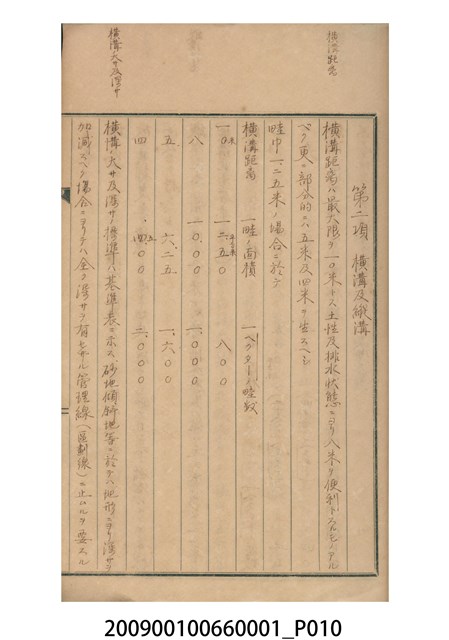 横溝距離
第二項 横溝及縦溝
横溝距離ハ最大限ヲ一〇米トス土性及排水状態ニヨリ八米ヲ便利トスルモノアル
ベク更ニ部分的ニハ五米及四米ヲ生スヘシ
畦巾一、二五米ノ場合ニ於テ
横溝距離 一畦ノ面積 一ヘクタール畦数
一〇米 一二、五〇 八〇〇
八 一〇、〇〇 一、〇〇〇
五 六、二五 一、六〇〇
四 五、〇〇 二、〇〇〇
横溝大サ及深サ
横溝ノ大サ及深サノ標準ハ基準表ニ示ス砂地傾斜地等ニ於テハ地形ニヨリ深サヲ
加減スヘク場合ニヨリテハ全ク深サヲ有セサル管理線(区劃線)ニ止ムルヲ要スル
200900100660001_P010